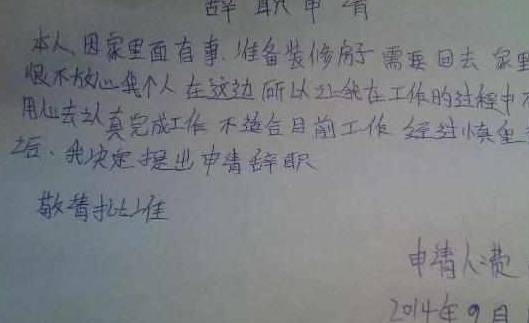 辞职申请
本人因家里面有事.准备装修房子需要回去 家里
很不放心我个人在这边所以让我在工作的过程中不
用心去认真完成工作 不适合目前工作 经过慎重
之后.我决定提出申请辞职
敬请批准
申请人:费
2014年9月